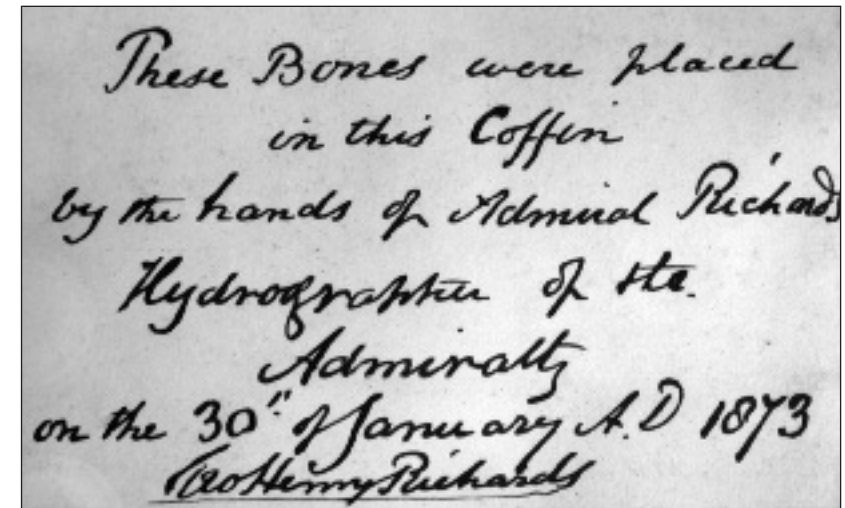 These Bones were placed
in this Coffin
by the hands of Admiral Richards
Hydrographer of the
Admiralty
on the 30" of January A.D 1873
Geo Henry Richards